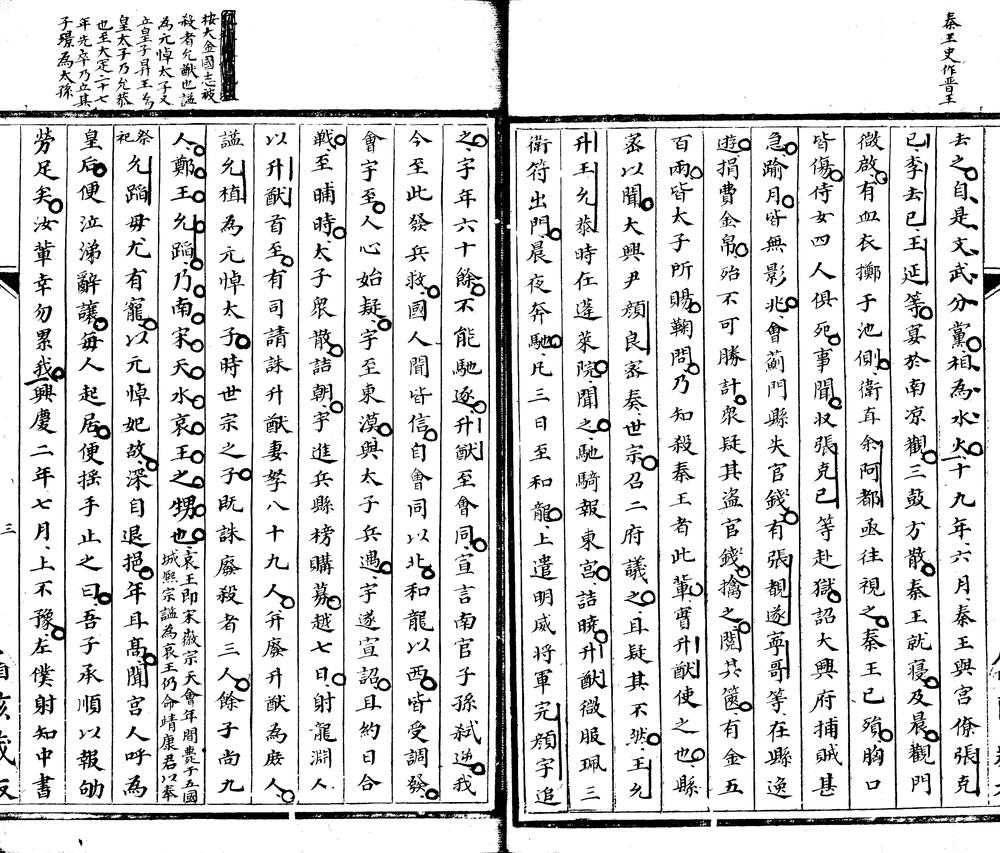 秦王史作晉王
去之自是文武分黨相為水火十九年六月秦王與宮僚張克
已李去已王延等宴於南凉觀三鼓方散秦王就寢及晨觀門
微啟有血衣擲于池側衛直余阿都亟往視之秦王已殞胸口
皆傷侍女四人俱死事聞収張克已等赴獄詔大興府捕賊甚
急踰月皆無影兆會薊門縣失官錢有張靚遂寧哥等在縣逸
遊捐費金帛殆不可勝計衆疑其盜官錢擒之閱其篋有金五
百兩皆太子所賜鞠問乃知殺秦王者此輩實升猷使之也縣
宻以聞大興尹顔良宻奏世宗召二府議之且疑其不然王允
升王允恭時任蓬萊院聞之馳騎報東宮詰曉升猷微服珮三
衛符出門晨夜奔馳凡三日至和龍上遣明威将軍完顔宇追
按大金國志被
殺者允猷也謚
為元悼太子又
立皇子昇王為
皇太子乃允恭
也至大定二十七
年先卒乃立其
子璟為太孫
之字年六十餘不能馳逐升猷至會同宣言南官子孫弑逆我
今至此發兵救國人聞皆信自會同以北和龍以西皆受調發
會宇至人心始疑宇至東漠與太子兵遇宇遂宣詔且約日合
戰至晡時太子衆散詰朝宇進兵縣榜購募越七日射龍淵人
以升猷首至有司請誅升猷妻孥八十九人并廢升猷為庶人
謚允植為元悼太子時世宗之子既誅廢殺者三人餘子尚九
人鄭王允蹈乃南宋天水哀王之甥也哀王即宋徽宗天會年間薨于五國
城熙宗謚為哀王仍命靖康君以奉
祭祀允蹈母尤有寵以元悼妃故深自退挹年且髙聞宮人呼為
皇后便泣涕辭讓每人起居便揺手止之曰吾子承順以報劬
勞足矣汝輩幸勿累我興慶二年七月上不豫左僕射知中書
三